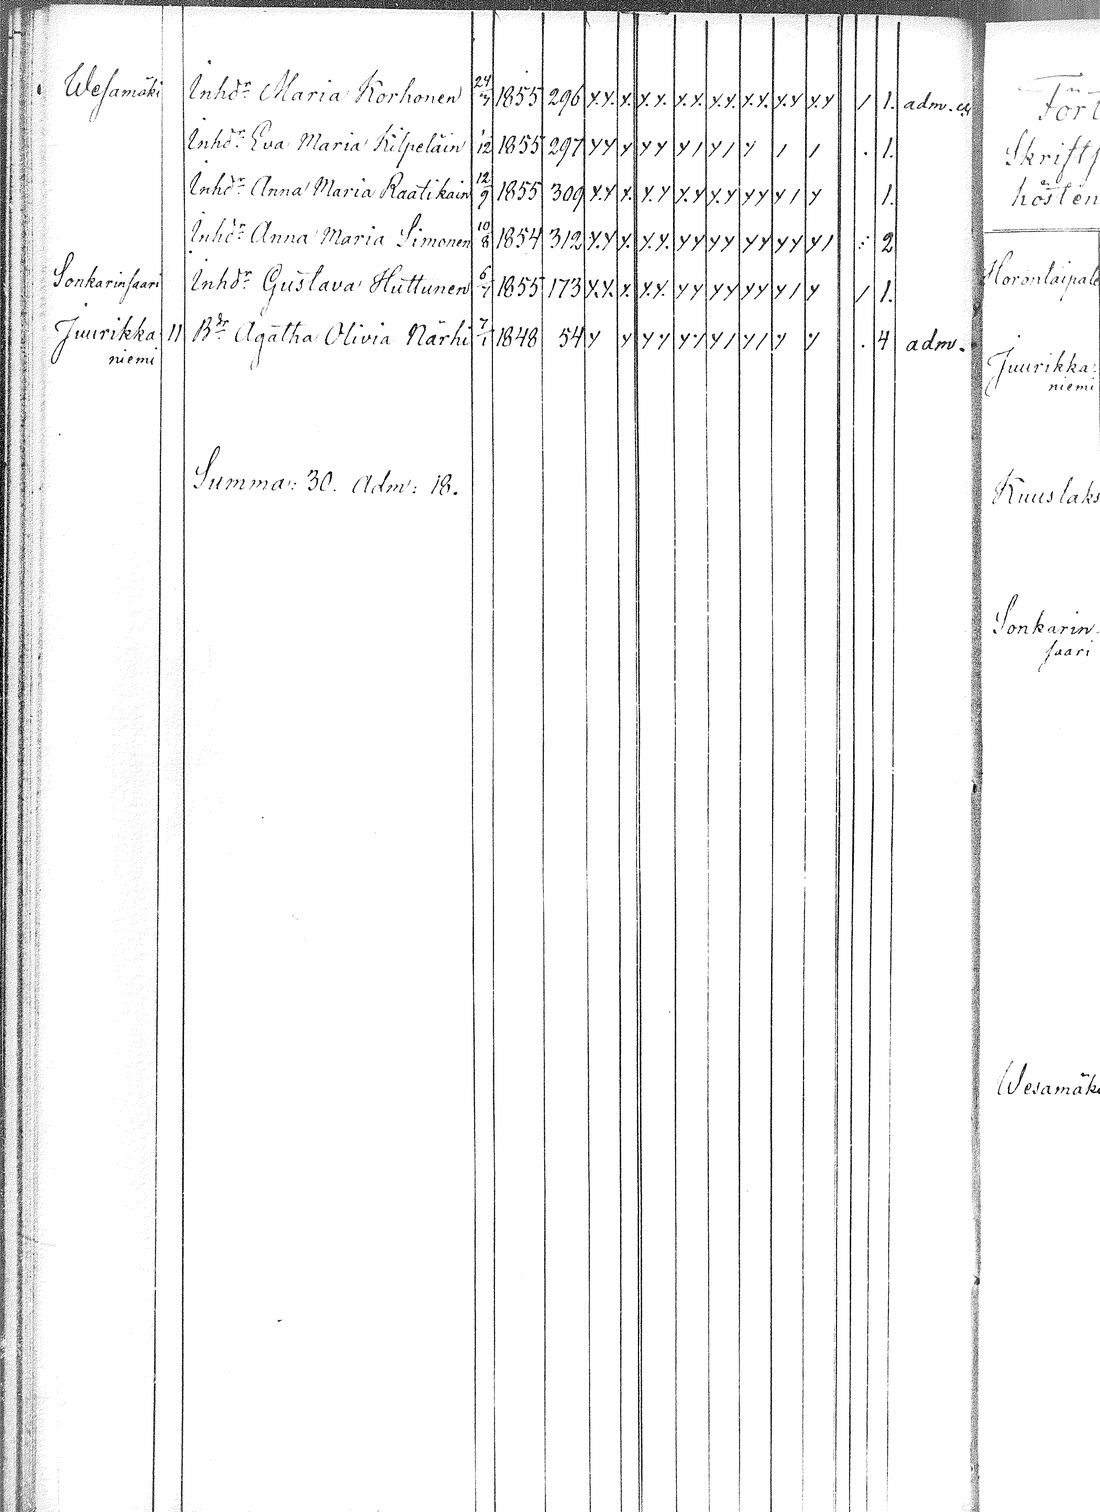 Wesamäki Inhdr Maria Korhonen 24/7 1855 296 / 1. adm.
Inhdr Eva Maria Kilpeläin 1/12 1855 297 . 1.
Inhdr Anna Maria Raatikain 12/9 1855 309 1.
Inhdr Anna Maria Simonen 10/8 1854 312 2
Sonkarinsaari Inhdr Gustava Huttunen 6/7 1855 173 / 1.
Juurikka 11 Bdr Agatha Olivia Närhi 7/1 1848 54 . 4 adm.
niemi
Summa: 30. Adm: 18.
Fört
Skrifts
hösten
Horontaipale
Juurikka:
niemi
Kuuslaks
Sonkarin-
saari
Wesamäki